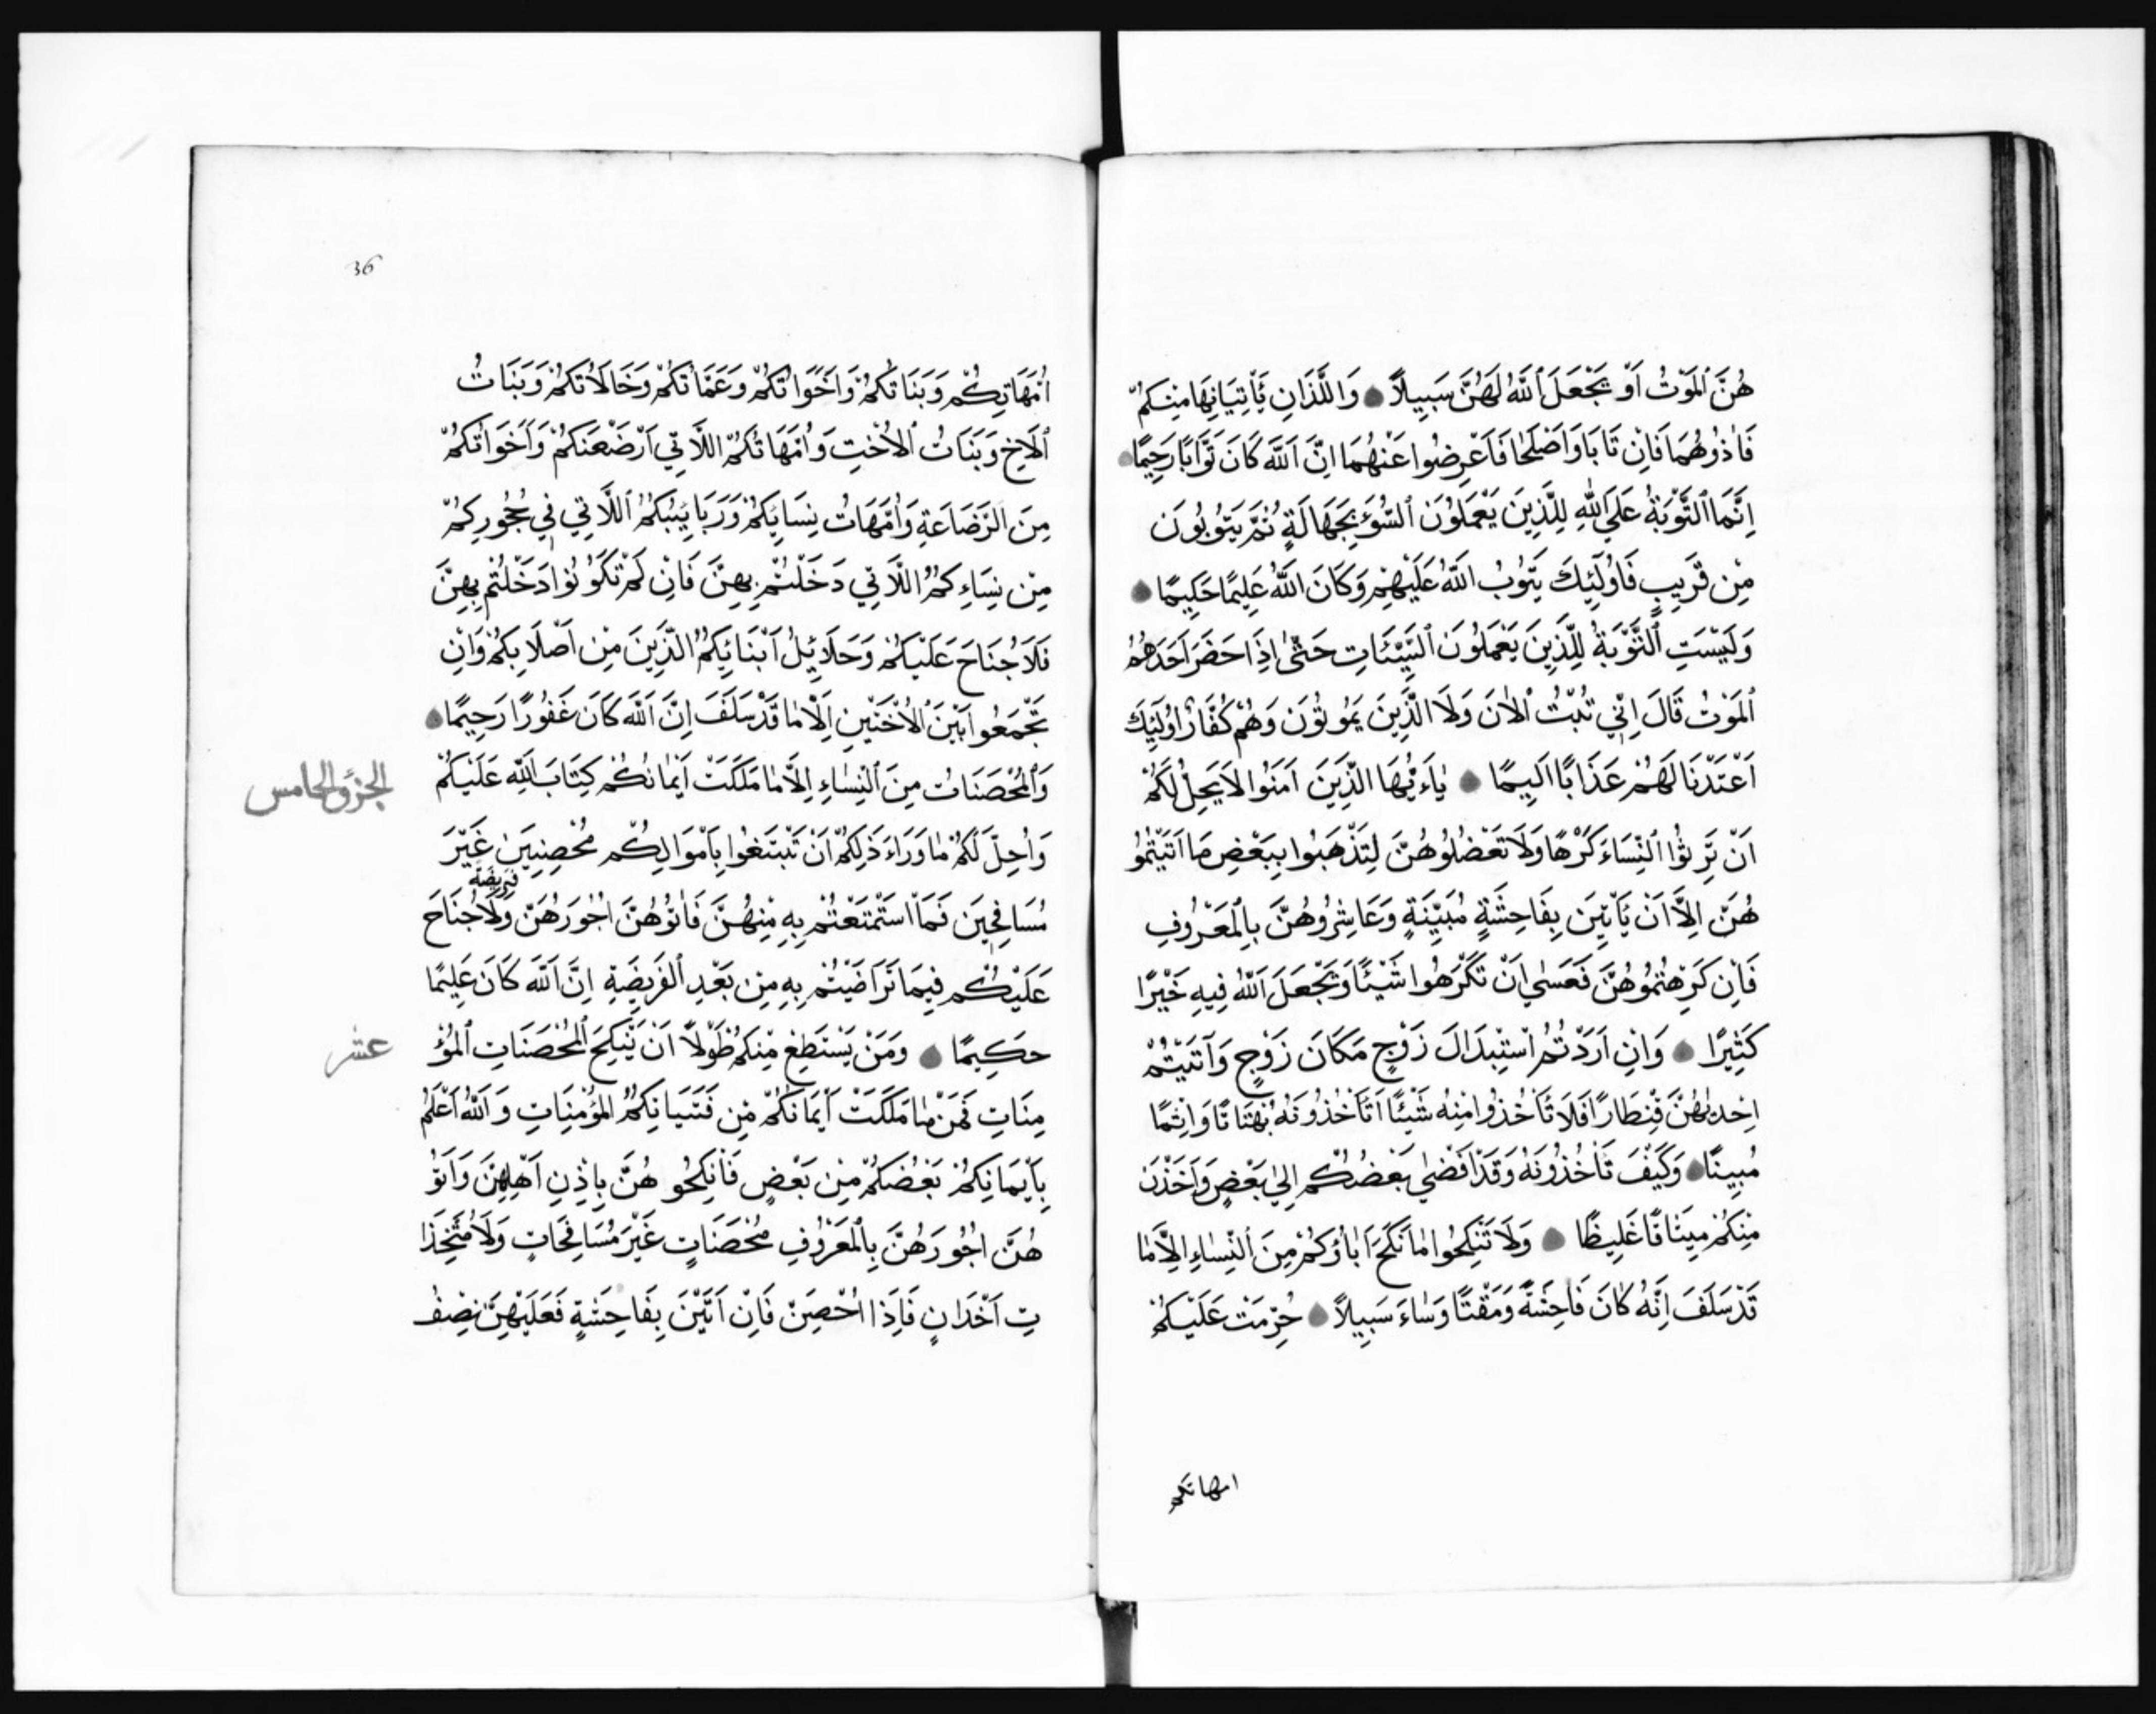 هُنَّ ٱلمَوْتُ اَوْ يَجْعَلَ ٱللّٰهُ لَهُنَّ سَبِيلًا وَالَّلذَانِ يَأْتِيَانِهَا مِنكُمْ
فَاٰذُوهُمَا فَاِن تَابَا وَاَصْلَحَا فَاَعْرِضُوا عَنْهُمَا اِنَّ اَللّٰهَ كَانَ تَوَّابًا رَحِيمًا
اِنَّمَا ٱلتَّوْبَةُ عَلَى ٱللّٰهِ لِلَّذِينَ يَعْمَلُوْنَ ٱلسُّوْءَ بِجَهَالَةٍ ثُمَّ يَتُوْبُونَ
مِنْ قَرِيبٍ فَاُولَٰئِكَ يَتُوْبُ اللّٰهُ عَلَيْهِمْ وَكَانَ اللّٰهُ عَلِيمًا حَكِيمًا
وَلَيْسَتِ ٱلتَّوْبَةُ لِلَّذِينَ يَعْمَلُوْنَ ٱلسَّيِّئَاتِ حَتّٰى اِذَا حَضَرَ اَحَدَهُمُ
ٱلمَوْتُ قَالَ اِنِّي تُبْتُ ٱلاٰنَ وَلَا الَّذِينَ يَمُوتُوْنَ وَهُمْ كُفَّارٌ اُولَٰئِكَ
اَعْتَدْنَا لَهُمْ عَذَابًا اَلِيمًا يٰاَءَيُّهَا الَّذِينَ اٰمَنُوا لَا يَحِلُّ لَكُمْ
اَنْ تَرِثُوْا ٱلنِّسَاءَ كَرْهًا وَلَا تَعْضُلُوهُنَّ لِتَذْهَبُوا بِبَعْضِ مَا اٰتَيْتُمُو
هُنَّ اِلَّا اَنْ يَأْتِيَن بِفَاحِشَةٍ مُبَيِّنَةٍ وَعَاشِرُوهُنَّ بِالْمَعْرُوفِ
فَاِن كَرِهْتُمُوهُنَّ فَعَسٰى اَنْ تَكْرَهُوا شَيْئًا وَيَجْعَلَ اَللّٰهُ فِيهِ خَيْرًا
كَثِيرًا وَاِن اَرَدْتُمْ اسْتِبْدَالَ زَوْجٍ مَكَانَ زَوْجٍ وَآتَيْتُمْ
اِحْدٰيهُنَّ قِنطَارًا فَلَا تَأْخُذُوا مِنهُ شَيْئًا اَتَأْخُذُونَهُ بُهْتَانًا وَاِثْمًا
مُبِينًا وَكَيْفَ تَأْخُذُونَهُ وَقَدْ اَفْضٰى بَعْضُكُمْ اِلٰى بَعْضٍ وَاَخَذْنَ
مِنكُمْ مِيثَاقًا غَلِيظًا وَلَا تَنْكِحُوا مٰا نَكَحَ اٰبٰاؤُكُمْ مِنَ ٱلنِّسٰاءِ اِلَّا مٰا
قَدْ سَلَفَ اِنَّهُ كٰانَ فٰاحِشَةً وَمَقْتًا وَسٰاءَ سَبِيلًا حُرِّمَتْ عَلَيْكُمْ
امهاتكم
36
اُمَّهَاتِكُمْ وَبَنَاتُكُمْ وَاَخَوَاتُكُمْ وَعَمَّاتُكُمْ وَخَالَاتُكُمْ وَبَنَاتُ
ٱلاَخِ وَبَنَاتُ ٱلاُخْتِ وَاُمَّهَاتُكُمُ اللَّاتِي اَرْضَعْنَكُمْ وَاَخَوَاتُكُمْ
مِنَ ٱلرَّضَاعَةِ وَاُمَّهَاتُ نِسَايِكُمْ وَرَبَائِبُكُمُ ٱللَّاتِي فِي حُجُورِكُمْ
مِنْ نِسَاءِكُمُ اللَّاتِي دَخَلْتُمْ بِهِنَّ فَاِنْ لَمْ تَكُوْنُوْا دَخَلْتُمْ بِهِنَّ
فَلَا جُنَاحَ عَلَيْكُمْ وَحَلَائِلُ اَبْنَائِكُمُ الَّذِينَ مِنْ اَصْلَابِكُمْ وَاَنْ
تَجْمَعُوا بَيْنَ ٱلاُخْتَيْنِ اِلَّا مٰا قَدْ سَلَفَ اِنَّ اَللّٰهَ كَانَ غَفُورًا رَحِيمًا
وَٱلْمُحْصَنَاتُ مِنَ ٱلنِّسٰاءِ اِلَّا مٰا مَلَكَتْ اَيْمٰانُكُمْ كِتَابَ اللّٰهِ عَلَيْكُمْ
الجزؤ الخامس
وَاُحِلَّ لَكُمْ مٰا وَرَاءَ ذَلِكُمْ اَنْ تَبْتَغُوا بِاَمْوَالِكُمْ مُحْصِنِينَ غَيْرَ
مُسَافِحِينَ فَمَا اسْتَمْتَعْتُمْ بِهِ مِنْهُنَّ فَاٰتُوْهُنَّ اُجُورَهُنَّ فَرِيضَةً وَلَا جُنَاحَ
عَلَيْكُمْ فِيمَا تَرَاضَيْتُمْ بِهِ مِنْ بَعْدِ ٱلفَرِيضَةِ اِنَّ اَللّٰهَ كَانَ عَلِيمًا
حَكِيمًا وَمَنْ يَسْتَطِعْ مِنكُمْ طَوْلًا اَنْ يَنْكِحَ ٱلمُحْصَنَاتِ ٱلمُؤْ
عشر
مِنَاتِ فَمِنْ مٰا مَلَكَتْ اَيْمَانُكُمْ مِن فَتَيَاتِكُمُ المُؤْمِنَاتِ وَاَللّٰهُ اَعْلَمُ
بِاَيْمَانِكُمْ بَعْضُكُمْ مِنْ بَعْضٍ فَاَنْكِحُو هُنَّ بِاِذْنِ اَهْلِهِنَّ وَاٰتُوْ
هُنَّ اُجُورَهُنَّ بِالْمَعْرُوفِ مُحْصَنَاتٍ غَيْرَ مُسَافِحَاتٍ وَلَا مُتَّخِذَا
تِ اَخْدَانٍ فَاِذَا اُحْصِنَّ فَاِنْ اَتَيْنَ بِفَاحِشَةٍ فَعَلَيْهِنَّ نِصْفُ